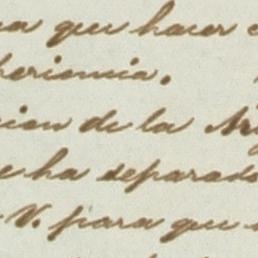 que hacer
periencia.
cion de la
e ha separado
V. para que